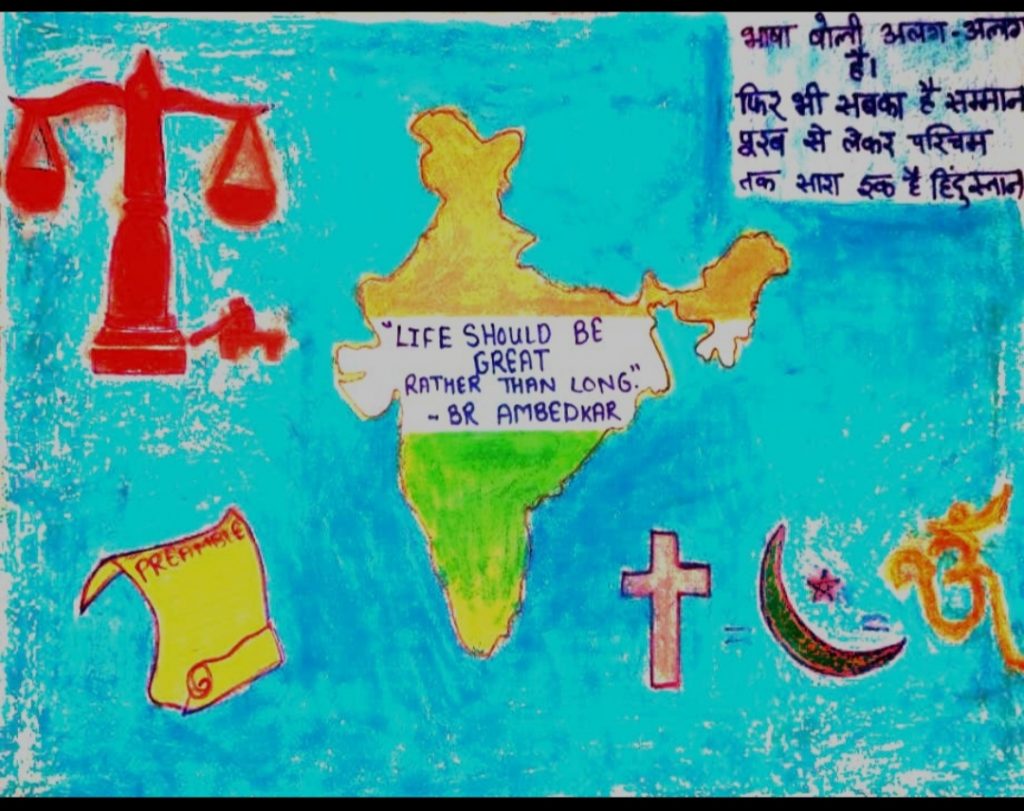 भाषा बोली अलग-अलग
हैं।
फिर भी सबका है सम्मान
पूरब से लेकर पश्चिम
तक सारा इक है हिंदुस्तान
"LIFE SHOULD BE
GREAT
RATHER THAN LONG."
- BR AMBEDKAR
PREAMBLE
= =
ॐ